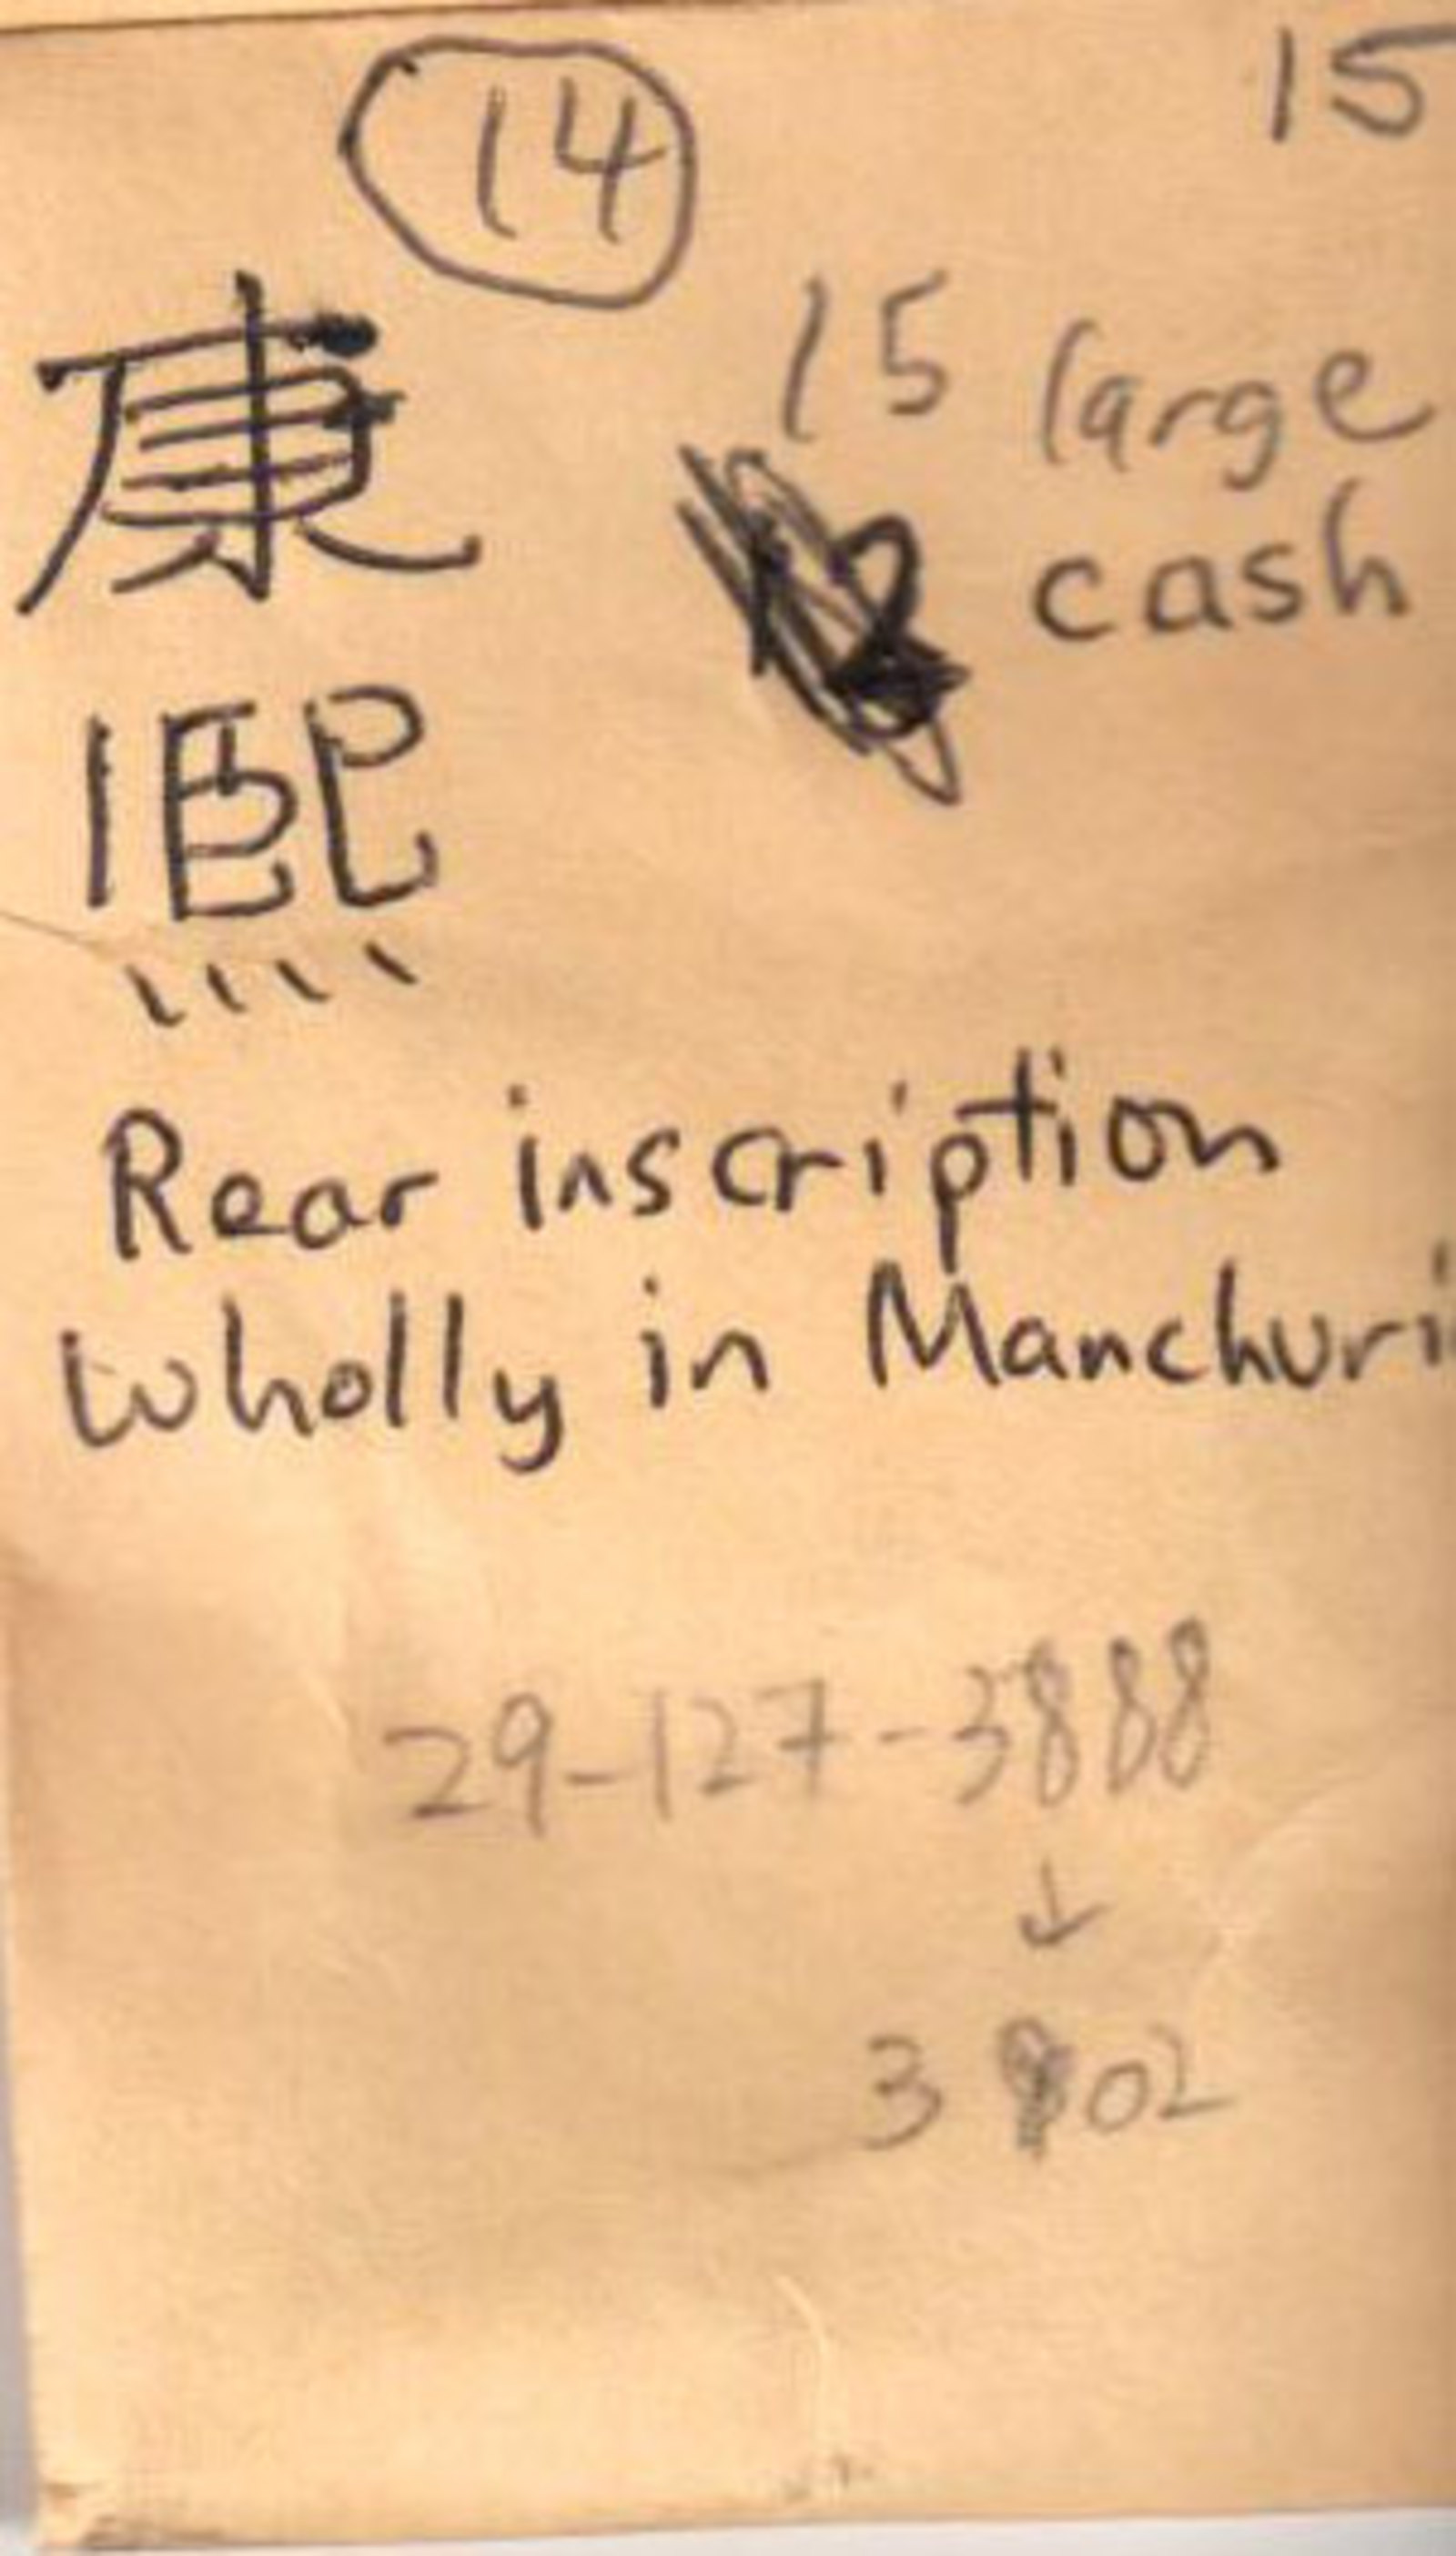 14
15
15 large
cash
康
熙
Rear inscription
wholly in Manchuri
29-127-3888
↓
3902